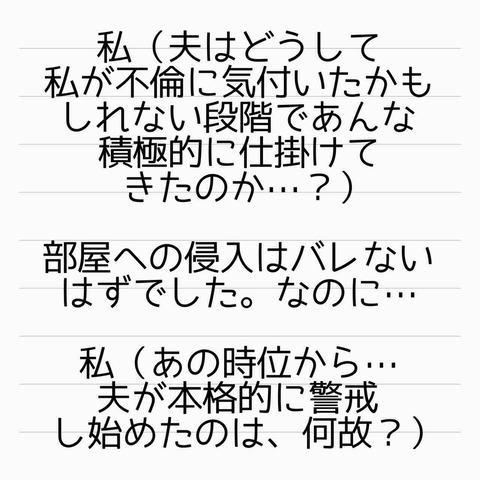 私（夫はどうして
私が不倫に気付いたかも
しれない段階であんな
積極的に仕掛けて
きたのか…？）
部屋への侵入はバレない
はずでした。なのに…
私（あの時位から…
夫が本格的に警戒
し始めたのは、何故？）